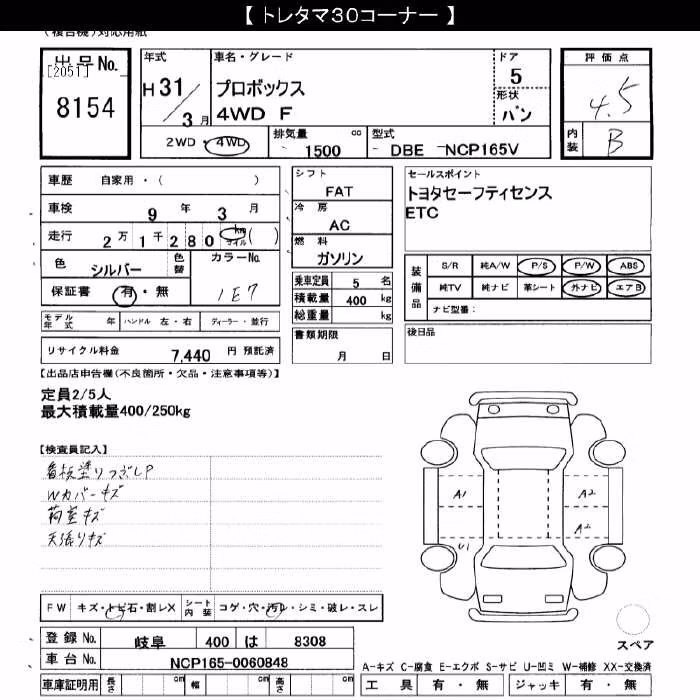 【トレタマ30コーナー】
(複合機)対応用紙
出品No.
[2051]
8154
年式
H31/3月
車名・グレード
プロボックス
4WD F
ドア
5
形状
バン
2WD・4WD
排気量 1500 cc
型式 DBE -NCP165V
評価点
4.5
内装
B
車歴 自家用・( )
車検 9年 3月
走行 2万1千280 km マイル ( )
色 シルバー 色替
カラーNo. 1E7
保証書 有・無
モデル年式 年 ハンドル 左・右 ディーラー・並行
リサイクル料金 7,440 円 預託済
シフト
FAT
冷房
AC
燃料
ガソリン
乗車定員 5 名
積載量 400 kg
総重量 kg
書類期限
月 日
セールスポイント
トヨタセーフティセンス
ETC
装備品
S/R 純A/W P/S P/W ABS
純TV 純ナビ 革シート 外ナビ エアB
ナビ型番:
後日品
【出品店申告欄(不良箇所・欠品・注意事項等)】
定員2/5人
最大積載量400/250kg
【検査員記入】
看板塗りつぶしP
Wカバーキズ
荷室キズ
天張りキズ
A1
A2
A2
U1
FW キズ・トビ石・割レX シート内装 コゲ・穴・汚レ・シミ・破レ・スレ
登録No. 岐阜 400 は 8308
車台No. NCP165-0060848
車庫証明用 長さ cm 幅 cm 高さ cm
スペア
A-キズ C-腐食 E-エクボ S-サビ U-凹ミ W-補修 XX-交換済
工具 有・無 ジャッキ 有・無